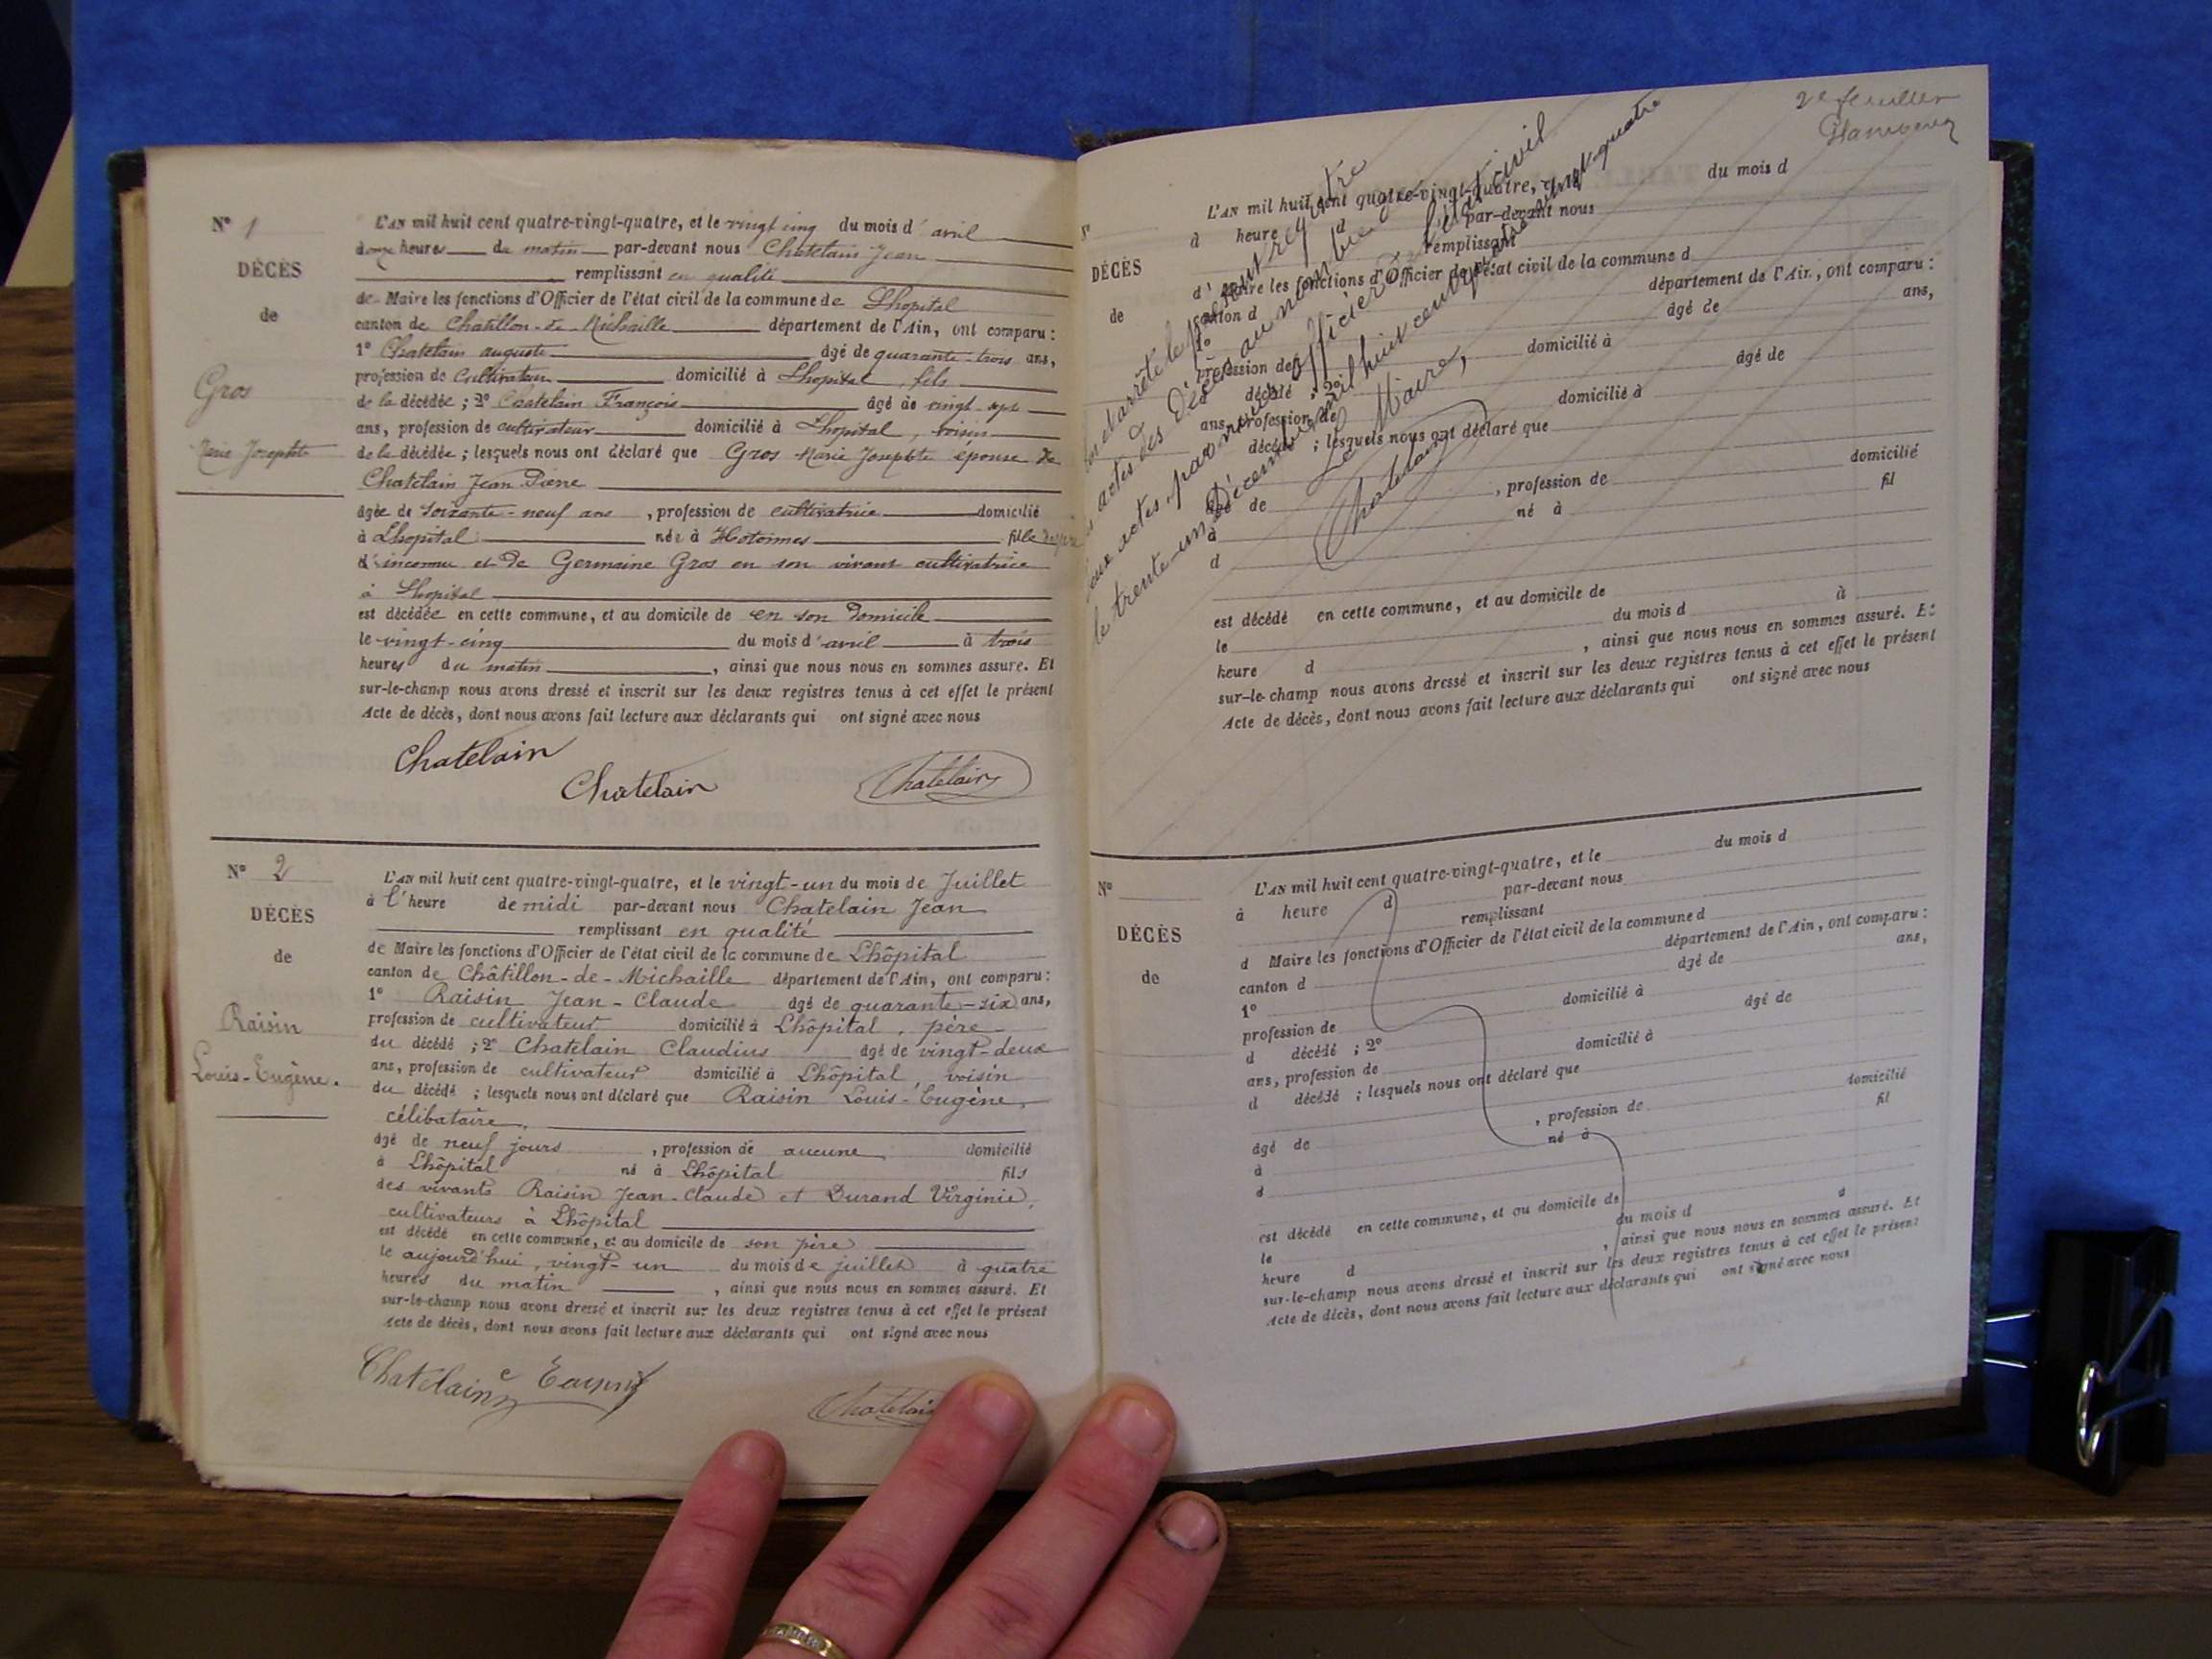 N° 1
DÉCÈS
de
Gros
Marie Josephte
L'AN mil huit cent quatre-vingt-quatre, et le vingt cinq du mois d'avril
onze heures du matin par-devant nous Chatelain Jean
remplissant en qualité
de Maire les fonctions d'Officier de l'état civil de la commune de Lhopital
canton de Chatillon-de-Michaille département de l'Ain, ont comparu :
1° Chatelain auguste âgé de quarante-trois ans,
profession de Cultivateur domicilié à Lhopital, fils
de la décédée ; 2° Chatelain François âgé de vingt-sept
ans, profession de cultivateur domicilié à Lhopital, voisin
de la décédée ; lesquels nous ont déclaré que Gros Marie Josephte épouse de
Chatelain Jean Pierre
âgée de soixante-neuf ans, profession de cultivatrice domicilié
à Lhopital née à Hotonnes fille
d'inconnu et de Germaine Gros en son vivant cultivatrice
à Lhopital
est décédée en cette commune, et au domicile de en son domicile
le vingt-cinq du mois d'avril à trois
heures du matin, ainsi que nous nous en sommes assuré. Et
sur-le-champ nous avons dressé et inscrit sur les deux registres tenus à cet effet le présent
Acte de décès, dont nous avons fait lecture aux déclarants qui ont signé avec nous
Chatelain
Chatelain
Chatelain
N° 2
DÉCÈS
de
Raisin
Louis-Eugène.
L'AN mil huit cent quatre-vingt-quatre, et le vingt-un du mois de Juillet
à l'heure de midi par-devant nous Chatelain Jean
remplissant en qualité
de Maire les fonctions d'Officier de l'état civil de la commune de Lhôpital
canton de Châtillon-de-Michaille département de l'Ain, ont comparu :
1° Raisin Jean-Claude âgé de quarante-six ans,
profession de cultivateur domicilié à Lhôpital, père
du décédé ; 2° Chatelain Claudius âgé de vingt-deux
ans, profession de cultivateur domicilié à Lhôpital, voisin
du décédé ; lesquels nous ont déclaré que Raisin Louis-Eugène,
célibataire,
âgé de neuf jours, profession de aucune domicilié
à Lhôpital né à Lhôpital fils
des vivants Raisin Jean-Claude et Durand Virginie,
cultivateurs à Lhôpital
est décédé en cette commune, et au domicile de son père
le aujourd'hui, vingt-un du mois de juillet à quatre
heures du matin, ainsi que nous nous en sommes assuré. Et
sur-le-champ nous avons dressé et inscrit sur les deux registres tenus à cet effet le présent
Acte de décès, dont nous avons fait lecture aux déclarants qui ont signé avec nous
Chatelain
Chatelain
2e feuillet
N°
DÉCÈS
de
L'AN mil huit cent quatre-vingt-quatre, du mois d
à heure d par-devant nous
remplissant
d Maire les fonctions d'Officier de l'état civil de la commune d
canton d département de l'Ain, ont comparu :
1° âgé de ans,
profession de domicilié à
d décédé ; 2° âgé de
ans, profession de domicilié à
d décédé ; lesquels nous ont déclaré que
âgé de , profession de domicilié
à né à fil
d
est décédé en cette commune, et au domicile de
le du mois d à
heure d , ainsi que nous nous en sommes assuré. Et
sur-le-champ nous avons dressé et inscrit sur les deux registres tenus à cet effet le présent
Acte de décès, dont nous avons fait lecture aux déclarants qui ont signé avec nous
arrêté le présent registre
actes des Décès au nombre de
actes, par nous officier de l'état civil
le trente-un Décembre mil huit cent quatre vingt-quatre
Le Maire,
Chatelain
N°
DÉCÈS
de
L'AN mil huit cent quatre-vingt-quatre, et le du mois d
à heure d par-devant nous
remplissant
d Maire les fonctions d'Officier de l'état civil de la commune d
canton d département de l'Ain, ont comparu :
1° âgé de ans,
profession de domicilié à
d décédé ; 2° âgé de
ans, profession de domicilié à
d décédé ; lesquels nous ont déclaré que
âgé de , profession de domicilié
à né à fil
d
est décédé en cette commune, et au domicile de
le du mois d à
heure d , ainsi que nous nous en sommes assuré. Et
sur-le-champ nous avons dressé et inscrit sur les deux registres tenus à cet effet le présent
Acte de décès, dont nous avons fait lecture aux déclarants qui ont signé avec nous